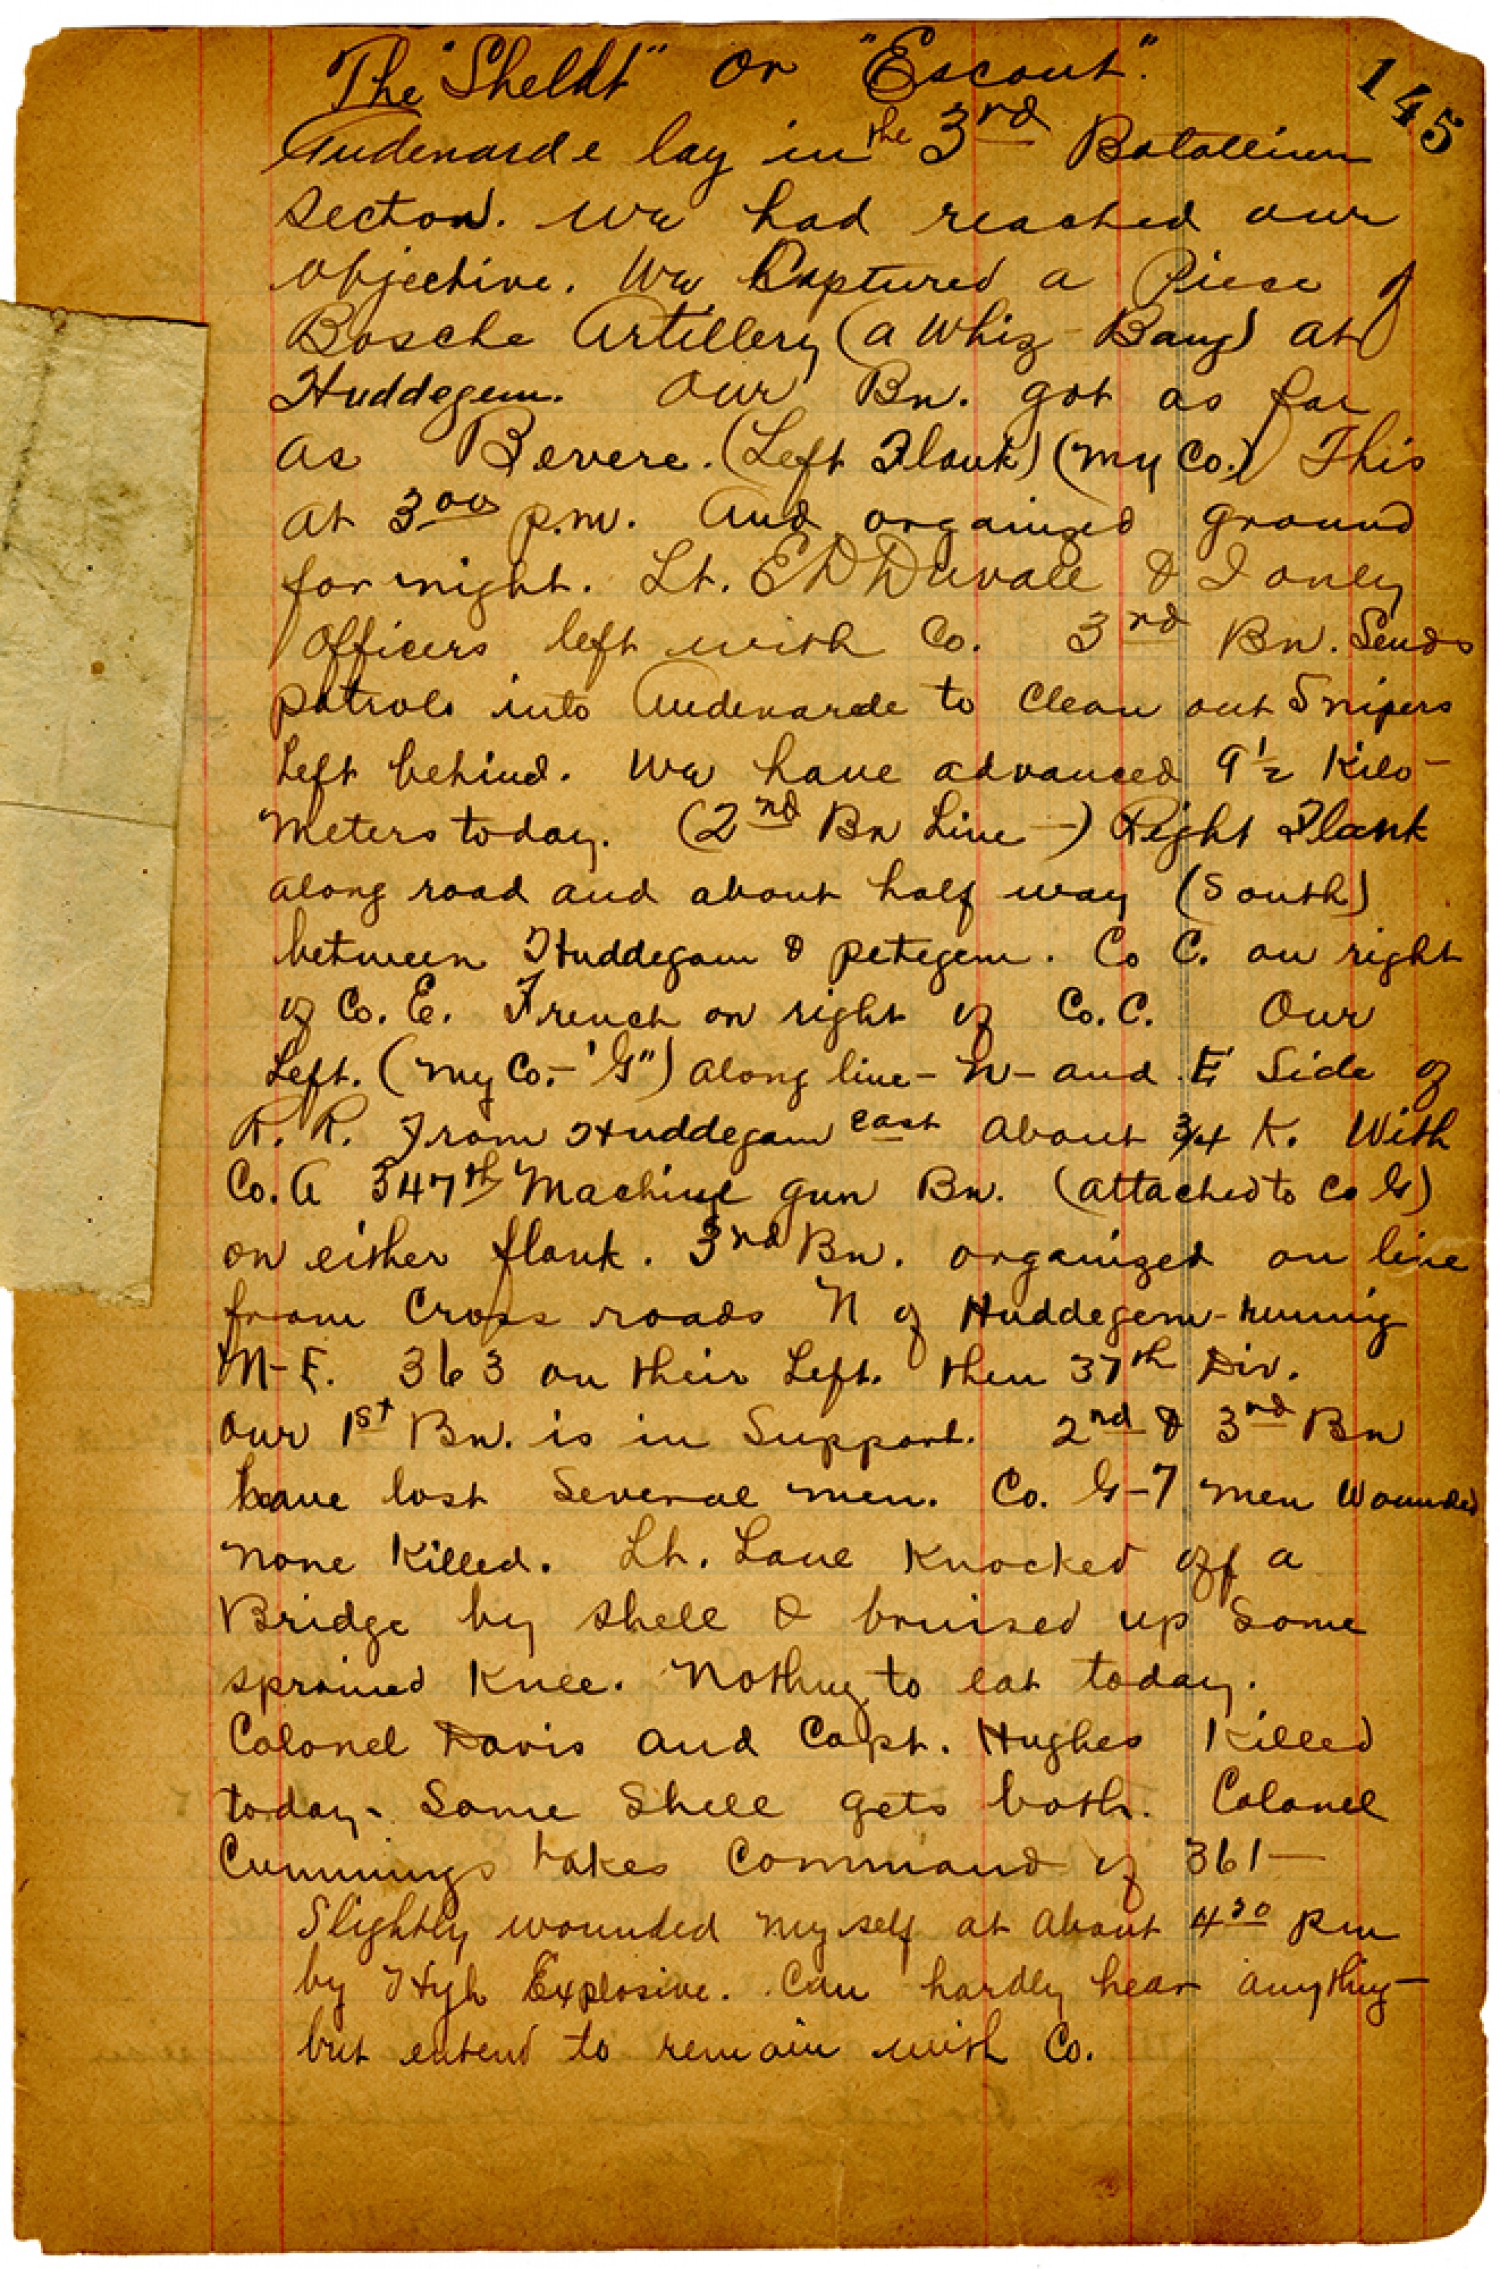 The "Sheldt" or "Escaut".
145
Audenarde lay in the 3rd Batallion
Sector. We had reached our
objective. We Captured a Piece of
Bosche Artillery (a Whiz-Bang) at
Huddegem. Our Bn. got as far
as Bevere. (Left Flank) (My Co.) This
at 3 00 p.m. And organized ground
for night. Lt. E D Duvall & I only
Officers left with Co. 3rd Bn. Sends
patrols into Audenarde to Clean out Snipers
Left behind. We have advanced 9 1/2 Kilo-
Meters today. (2nd Bn Line -) Right Flank
along road and about half way (South)
between Huddegam & petegem. Co C. on right
of Co. E. French on right of Co. C. Our
Left. (My Co. - "G") along line - N - and E Side of
R. R. From Huddegam east about 3/4 K. With
Co. A 347th Machine gun Bn. (attached to Co G)
on either flank. 3rd Bn. organized on line
from Cross roads N of Huddegem - runing
N-E. 363 on their Left. then 37th Div.
Our 1st Bn. is in Support. 2nd & 3rd Bn
have lost Several men. Co. G - 7 Men Wounded
None Killed. Lt. Lane Knocked off a
Bridge by shell & bruised up Some
sprained Knee. Nothing to eat today.
Colonel Davis and Capt. Hughes Killed
today - Same Shell gets both. Colonel
Cummings takes Command of 361 -
Slightly wounded myself at about 4 30 pm
by High Explosive. Can hardly hear anything -
but entend to remain with Co.